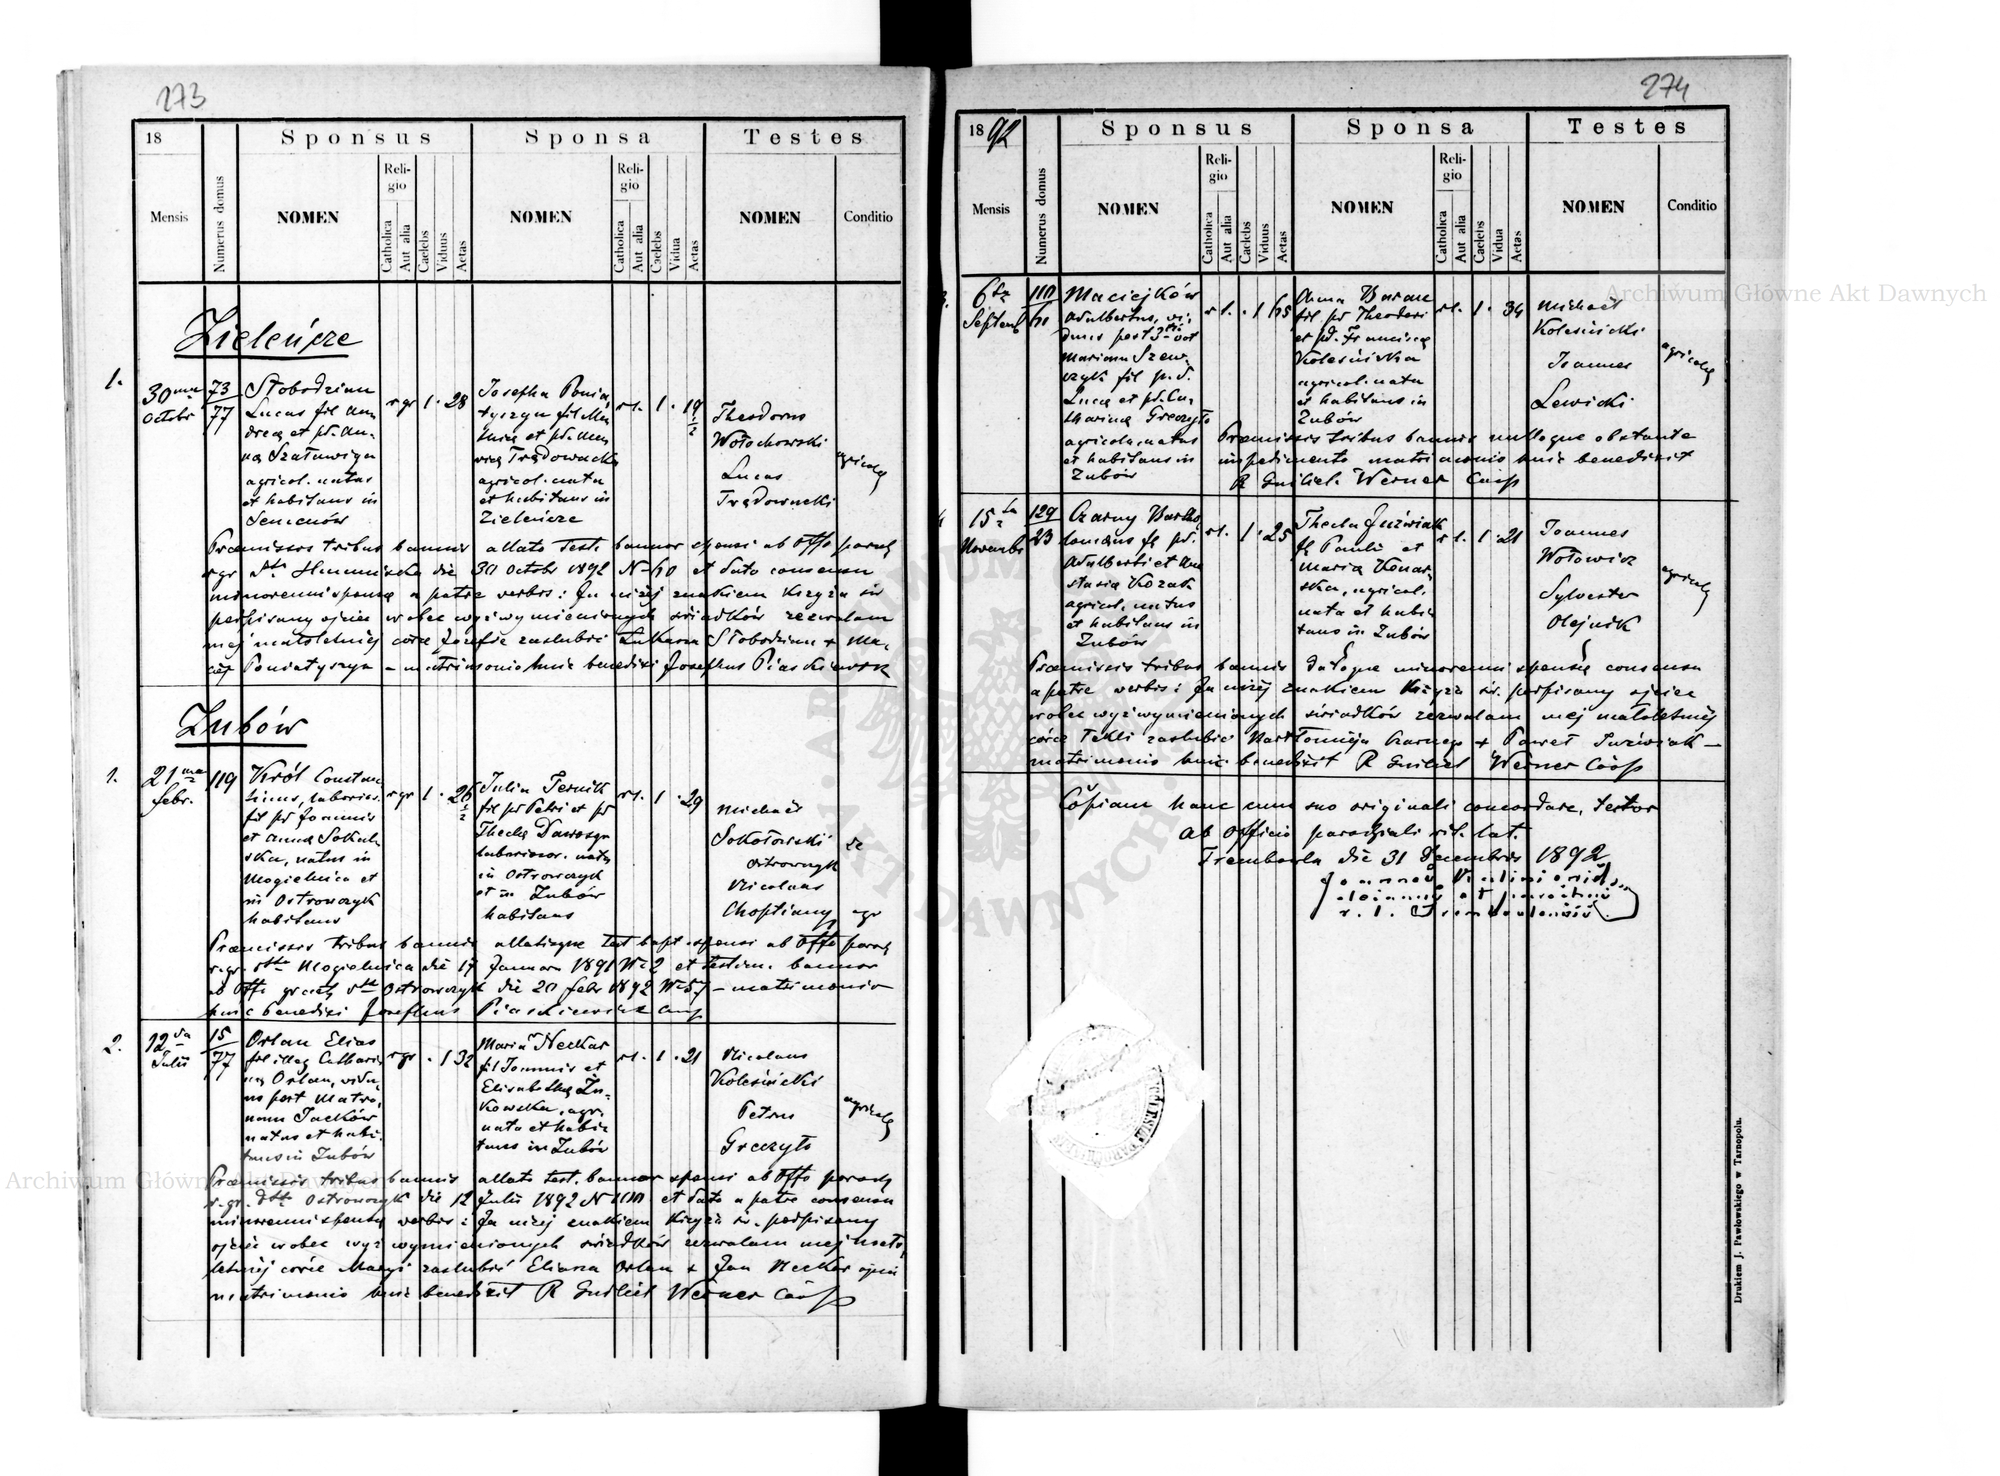 273
18
Sponsus
Sponsa
Testes
Mensis
Numerus domus
NOMEN
Religio
Catholica
Aut alia
Caelebs
Viduus
Aetas
NOMEN
Religio
Catholica
Aut alia
Caelebs
Vidua
Aetas
NOMEN
Conditio
Zieleńcze
1.
30
Octobr
73
77
Słobodzian
Lucas fil An-
dreę et pd. An-
agricol. natus
et habitans in
Semenów
r gr
1
28
Josepha Ponia-
tyszyn fil Ma-
agricol. nata
et habitans in
Zieleńcze
r l.
1
19
Theodorus
Wołochowski
Lucas
Trędowacki
agricolę
Praemissis tribus bannis allato test. bannor sponsi ab Offo paroch
die 30 Octobr 1892 N 60 et dato consensu
minorenni sponsę a patre verbis: Ja niżej znakiem Krzyża św
podpisany ojciec wobec wyżwymienionych świadków zezwalam
mej małoletniej córce Józefie zaslubić Łukasza Słobodzian + Ma-
ciej Poniatyszyn – matrimonio huic benedixi Josephus Piaskiewicz
Zubów
1.
21
febr.
119
Król Constan-
tinus, laborios.
fil pd Joannis
et Anna Sokal-
ska, natus in
Mogielnica et
in Ostrowczyk
habitans
r gr
1
26
Julia Fernik
fil pd Petri et pd
Theclę
laborios. nata
in Ostrowczyk
et in Zubów
habitans
r l.
1
29
Michael
Sokołowski
de
Ostrowczyk
Nicolaus
Choptiany
agr
Praemissis tribus bannis allatisque test bapt. sponsi ab Offo paroch
r. gr. dtto Mogielnica die 17 Januar 1891 N 2 et testim. bannor
ab Offo gr cath dtto Ostrowczyk die 20 febr 1892 N 57 – matrimonio
huic benedixi Josephus Piaskiewicz Coop
2.
12
Julii
15
77
Orlan Elias
fil illeg Cathari-
nę Orlan, vidu-
us post Matro-
nam Jacków
natus et habi-
tans in Zubów
r gr
1
32
Maria Neckar
fil Joannis et
Elisabethę Żu-
kowska, agr.
nata et habi-
tans in Zubów
r l.
1
21
Nicolaus
Kolesiński
Petrus
Greczyło
agricolę
Praemissis tribus bannis allato test. bannor sponsi ab Offo paroch
r. gr. dtto Ostrowczyk die 12 Julii 1892 N et dato a patre consensu
minorenni sponsę verbis: Ja niżej znakiem Krzyża św. podpisany
ojciec wobec wyżwymienionych świadków zezwalam mej mało-
letniej córce Maryi zaslubić Eliasza Orlan + Jan Neckar ojciec
matrimonio huic benedixit R Guiliel Werner Coop
274
1892
Sponsus
Sponsa
Testes
Mensis
Numerus domus
NOMEN
Religio
Catholica
Aut alia
Caelebs
Viduus
Aetas
NOMEN
Religio
Catholica
Aut alia
Caelebs
Vidua
Aetas
NOMEN
Conditio
3.
6
Septemb
Maciejków
Adalbertus, vi-
duus post
Mariam Szew-
czyk fil p. d.
Lucę et pd. Ca-
tharinę Greczyło
agricola, natus
et habitans in
Zubów
r l.
1
65
Anna Baran
fil pd Theodori
et pd. Franciscę
Kolesińska
agricol. nata
et habitans in
Zubów
r l.
1
34
Michael
Kolesiński
Joannes
Lewicki
agricolę
Praemissis tribus bannis nulloque obstante
impedimento matrimonio huic benedixit
R Guiliel. Werner Coop
4
15
Novembr
129
23
Czarny Bartho-
lomaeus fil pd.
Adalberti et Ana-
stasię Kozak
agricol, natus
et habitans in
Zubów
r l.
1
25
Thecla Juźwiak
fil Pauli et
Marię Konar-
ska, agricol.
nata et habi-
tans in Zubów
r l.
1
21
Joannes
Wołowicz
Sylvester
Olejnik
agricolę
Praemissis tribus bannis datoque minorenni sponsę consensu
a patre verbis: Ja niżej znakiem Krzyża św. podpisany ojciec
wobec wyżwymienionych świadków zezwalam mej małoletniej
córce Tekli zaslubić Bartłomieja Czarnego + Paweł Juźwiak –
matrimonio huic benedixit R Guiliel Werner Coop
Copiam hanc cum suo originali concordare, testor
Ab Officio parochiali rit. lat.
Trembowla die 31 Decembris 1892
Drukiem J. Pawłowskiego w Tarnopolu.
Archiwum Główne Akt Dawnych
Archiwum Główne Akt Dawnych
ARCHIWUM GŁÓWNE AKT DAWNYCH